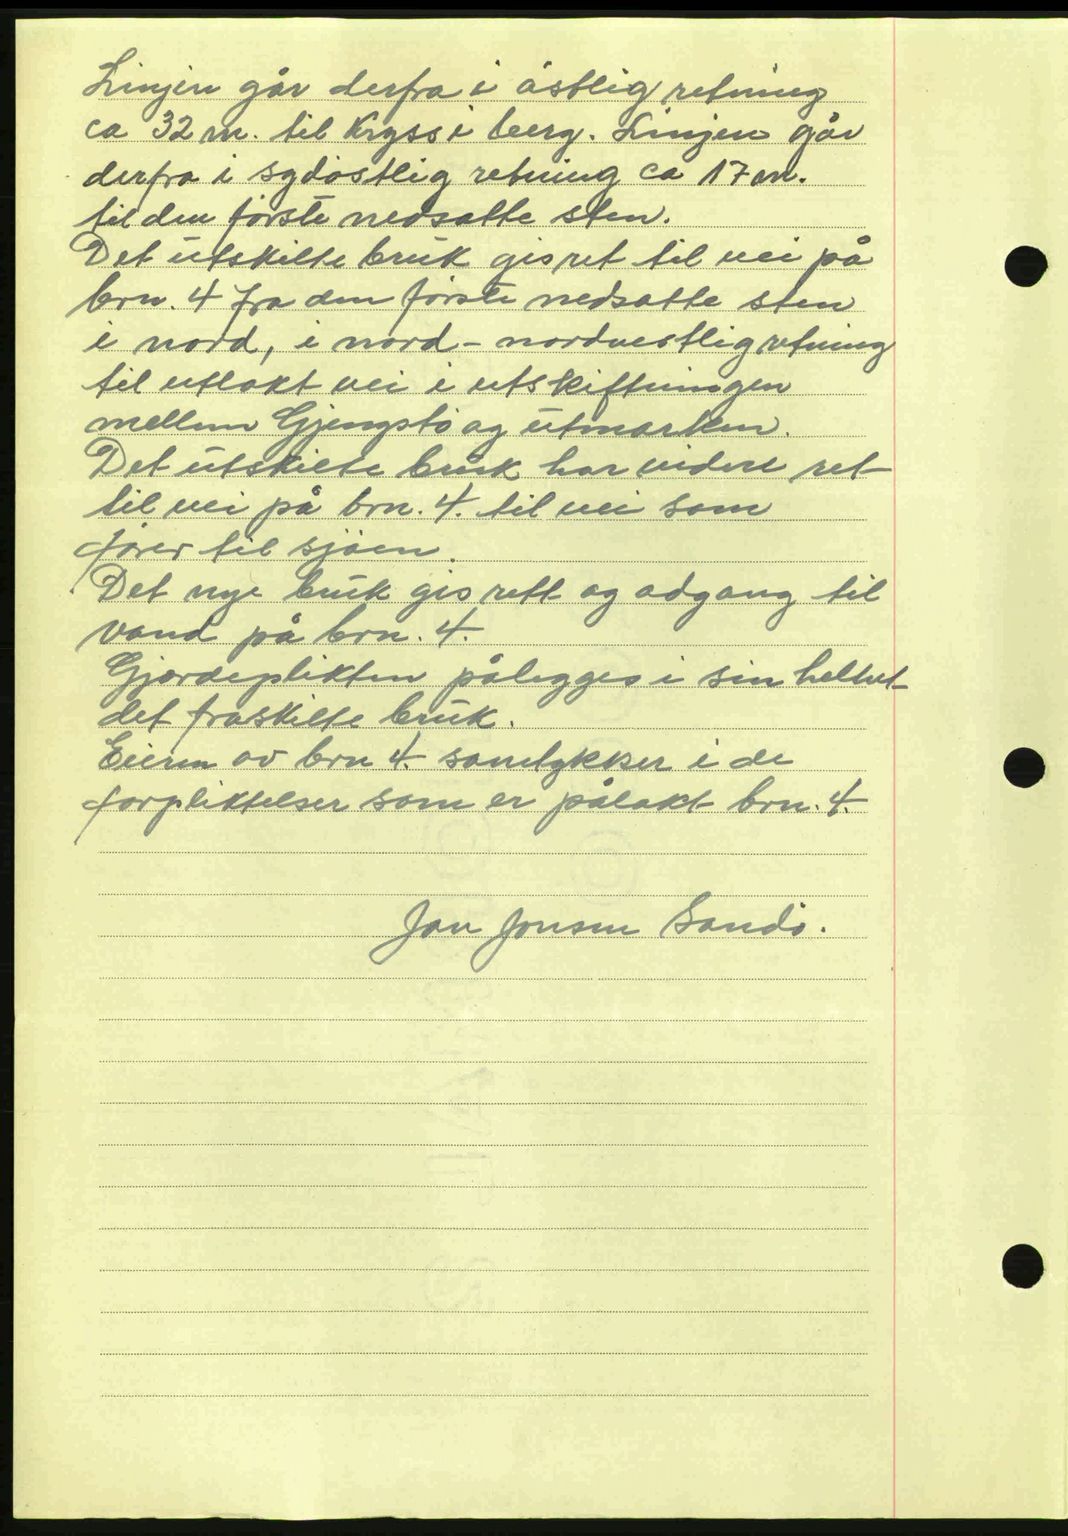 Linjen går derfra i östlig retning
ca 32 m. til kryss i berg. Linjen går
derfra i sydöstlig retning ca 17 m.
til den förste nedsatte sten.
Det utskilte bruk gis ret til vei på
brn. 4 fra den förste nedsatte sten
i nord, i nord - nordvestlig retning
til utlakt vei i utskiftningen
mellem Gjengstö og utmarken.
Det utskilte bruk har videre ret
til vei på brn. 4. til vei som
förer til sjöen.
Det nye bruk gis rett og adgang til
vand på brn. 4.
Gjerdeplikten pålegges i sin helhet
det fraskilte bruk.
Eieren av brn 4. samtykker i de
forpliktelser som er pålakt brn. 4.
Jon Jonsen Sandö.